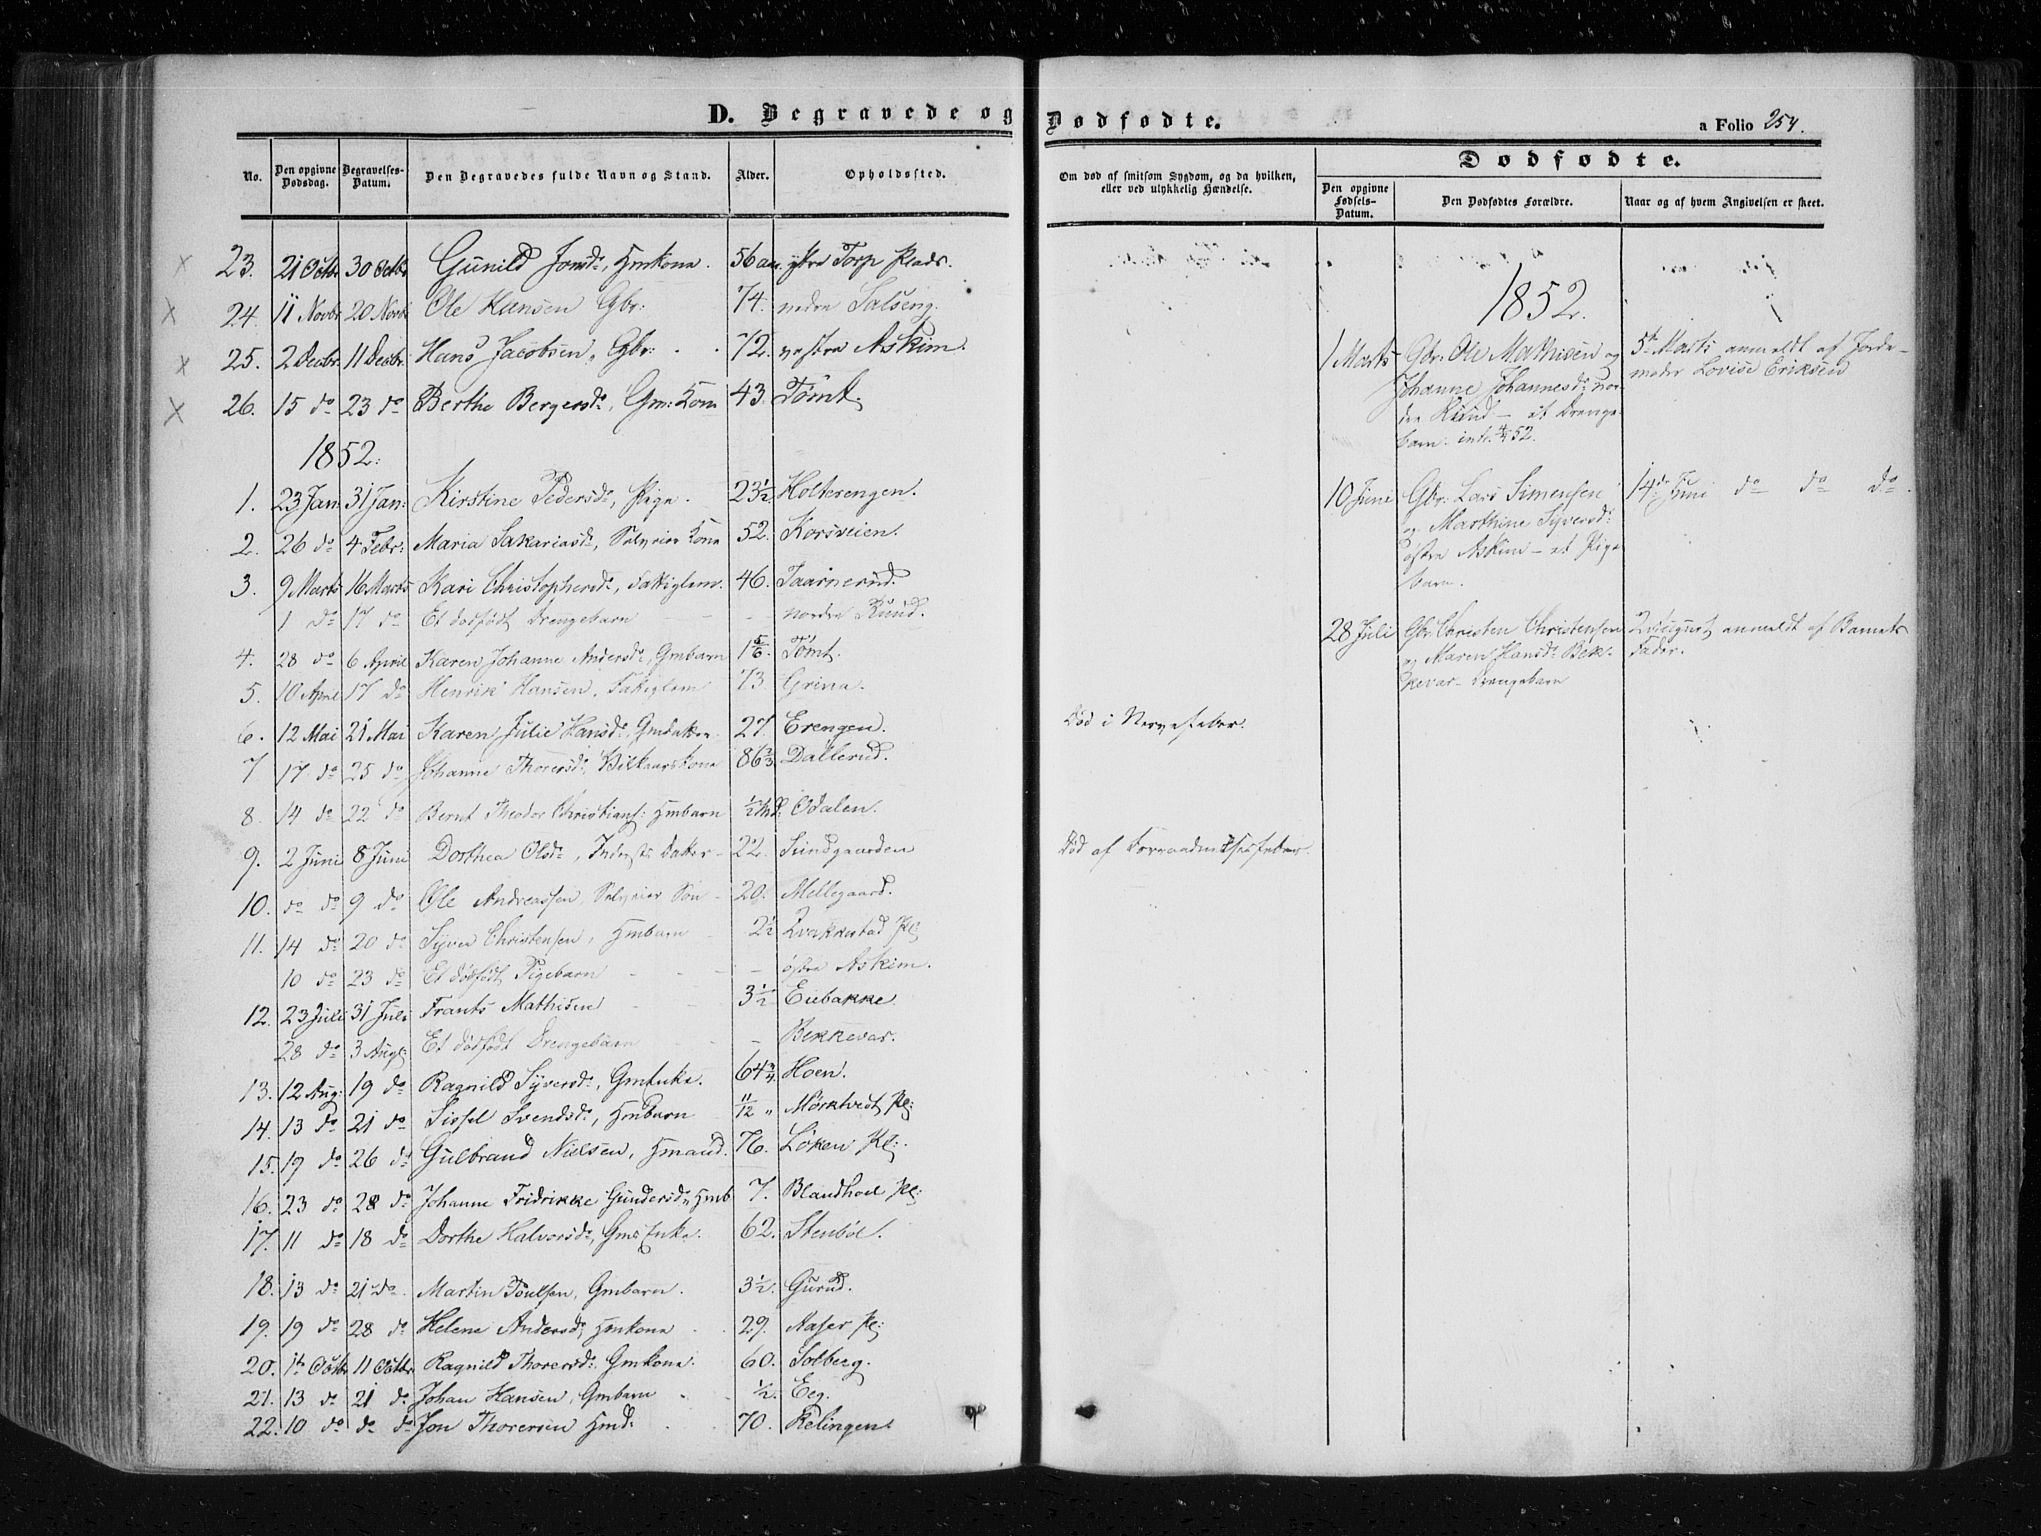 D. Begravede og Dødfødte.
a Folio 254.
No. Den opgivne Dødsdag. Begravelses-Datum. Den Begravedes fulde Navn og Stand. Alder. Opholdssted.
23. 21 Octbr 30 Octbr Gunild Jonsd:, Hmkone. 56 aar ytre Torp Plads.
24. 11 Novbr 20 Novbr Ole Hansen Gbr: 74. nedre Salseng.
25. 2 Decbr. 11 Decbr. Hans Jacobsen, Gbr: 72. vestre Askim.
26. 15 do 23 do Berthe Bergersd:, Gm: Kone 43 Tömt.
1852:
1. 23 Jan: 31 Jan: Kirstine Pedersd:, Pige. 23½ Holterengen.
2. 26 do 4 Febr: Maria Sakariasd:, Selveier Kone 52. Korsveien.
3. 9 Marts 16 Marts Kari Christophersd:, Fattiglem. 46. Taarnerud.
1 do 17 do Et dødfødt Drengebarn - nordre Ruud.
4. 28 do 6 April Karen Johanne Andersd:, Gmbarn 1 5/6. Tömt.
5. 10 April 17 do Henrik Hansen, Fattiglem 73. Grina.
6. 12 Mai 21 Mai Karen Julie Hansd:, Gmdatter 27. Erengen.
7 17 do 25 do Johanne Thorersd:, Vilkaarskone 86⅔ Dallerud.
8. 14 do 22 do Bernt Theodor Christians: Hmbarn ½ Md: Odalen.
9. 2 Juni 8 Juni Dorthea Olsd:, Inderst: Datter 22. Sundgaarden
10. do do 9 do Ole Andreassen, Selveier Søn 20. Mellegaard.
11. 14 do 20 do Syver Christensen, Hmbarn 2½ Kvakkestad Pl:
10 do 23 do Et dødfødt Pigebarn - østre Askim.
12. 23 Juli 31 Juli Frants Mathisen 3½ Eiebakke.
28 do 3 Aug: Et dødfødt Drengebarn - Bekkevar.
13. 12 Aug: 19 do Ragnild Syversd:, Gmenke. 64¾ Hoen.
14. 13 do 21 do Sissel Svendsd:, Hmbarn 11/12 " Mörktvedt Pl:
15. 19 do 26 do Gulbrand Nielsen, Hmand. 76. Löken Pl:
16. 23 do 28 do Johanne Fridrikke Gundersd: Hmb 7. Pl:
17. 11 do 18 do Dorthe Halvorsd:, Gms Enke. 62. Stenböl.
18. 13 do 21 do. Martin Poulsen, Gmbarn. 3½. Gurud.
19. 19 do 28 do Helene Andersd: Hmkone 29. Aaser Pl:
20. 1te Octbr 11 Octbr Ragnild Thorersd: Gmkone. 60. Solberg.
21. 13 do 21 do Johan Hansen, Gmbarn ½. Eeg.
22. 10 do do do Jon Thorersen Hmd: 70. Relingen.
Om død af smitsom Sygdom, og da hvilken,
eller ved ulykkelig Hændelse.
Død i Nervefeber.
Død af
Dødfødte.
Den opgivne Fødsels-Datum. Den Dødfødtes Forældre. Naar og af hvem Angivelsen er skeet.
1852.
1 Marts Gbr. Ole Mathisen og 5te Marts anmeldt af Jorde-
Johanne Johannesd: nor- moder Lovise Eriksen
dre Ruud - et Drenge
barn. 52.
10 Juni Gbr: Lars Simensen 14de Juni do do do.
og Marthine Syversd:
østre Askim - et Pige
barn.
28 Juli Gbr. Christen Christensen 2 August anmeldt af Barnets
og Maren Hansd: Bek- Fader.
kevar - Drengebarn